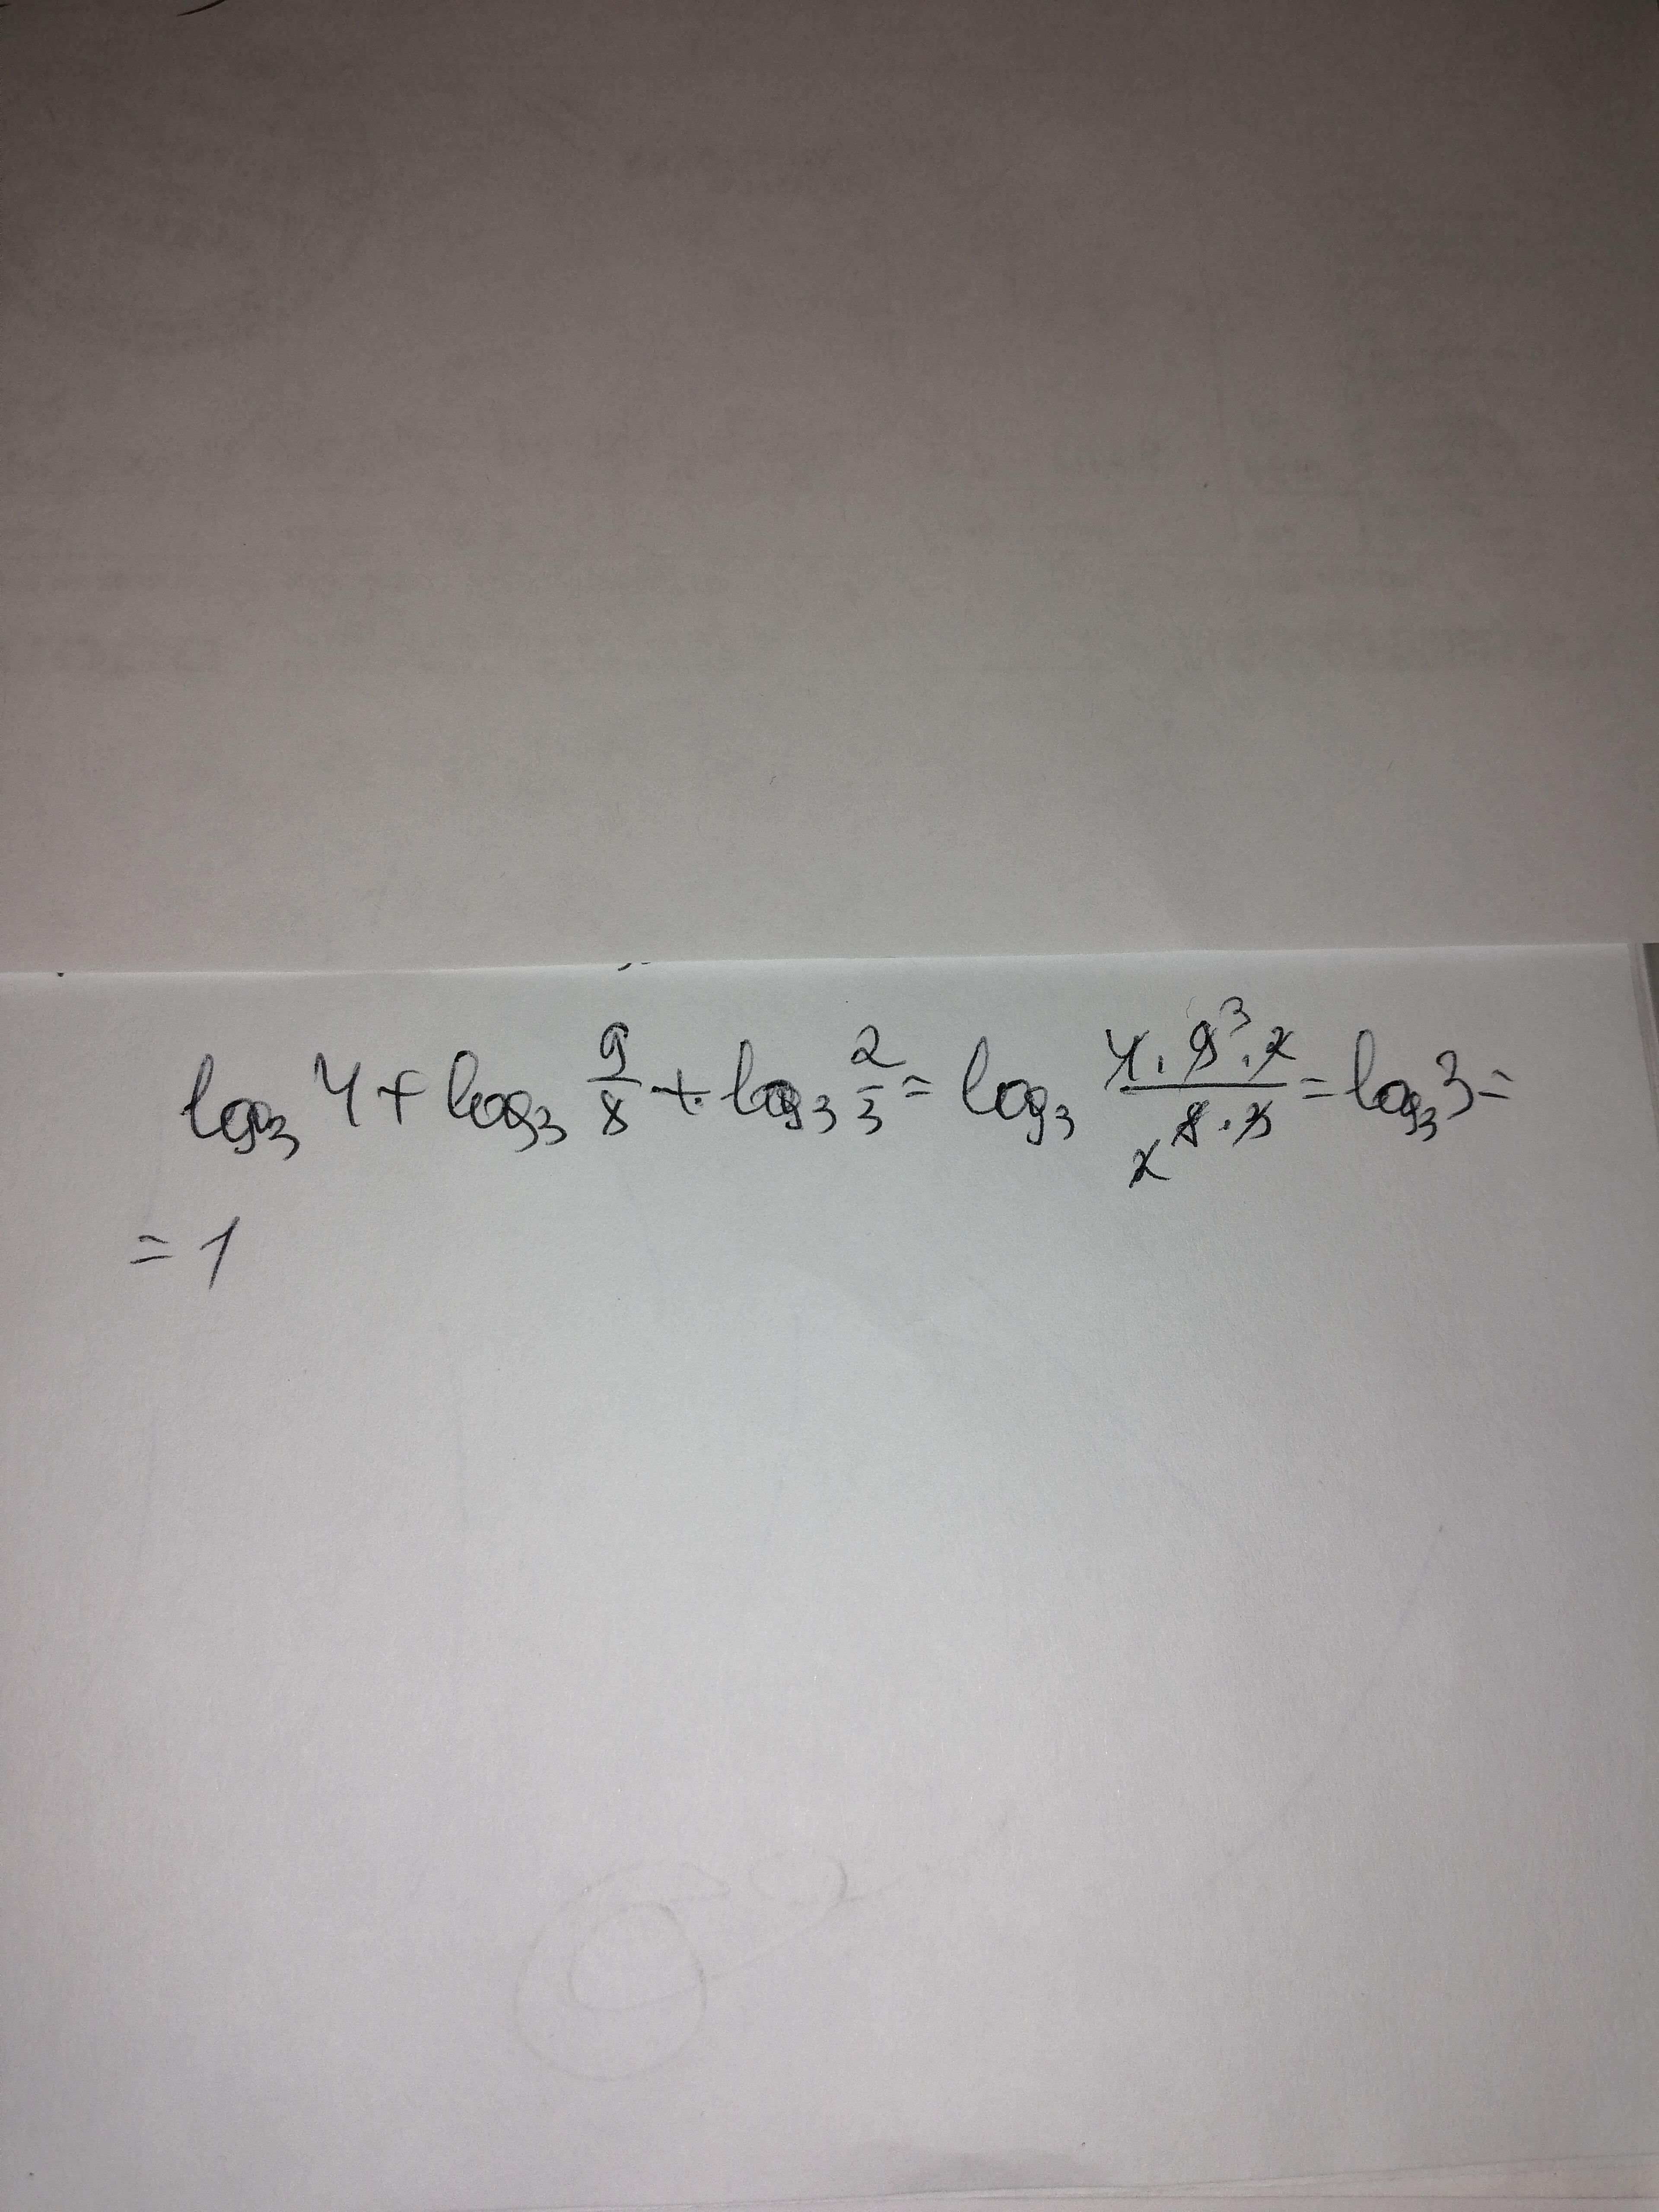 log₃ 4 + log₃ 9/8 + log₃ 2/3 = log₃ (4 · 9³ · 2)/(₂8 · 3) = log₃ 3 =
= 1